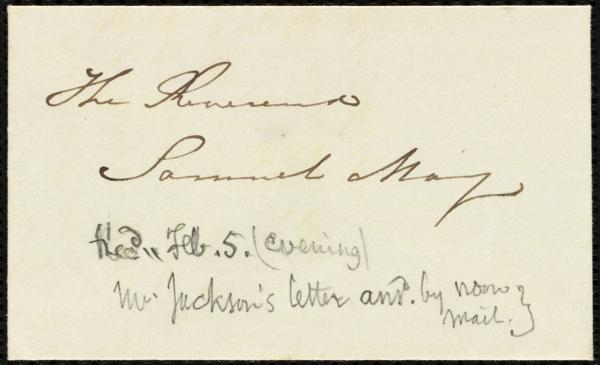 The Reverend
Samuel May
Recd. Feb. 5. (evening)
Mr. Jackson's letter ansd. by noon
mail.